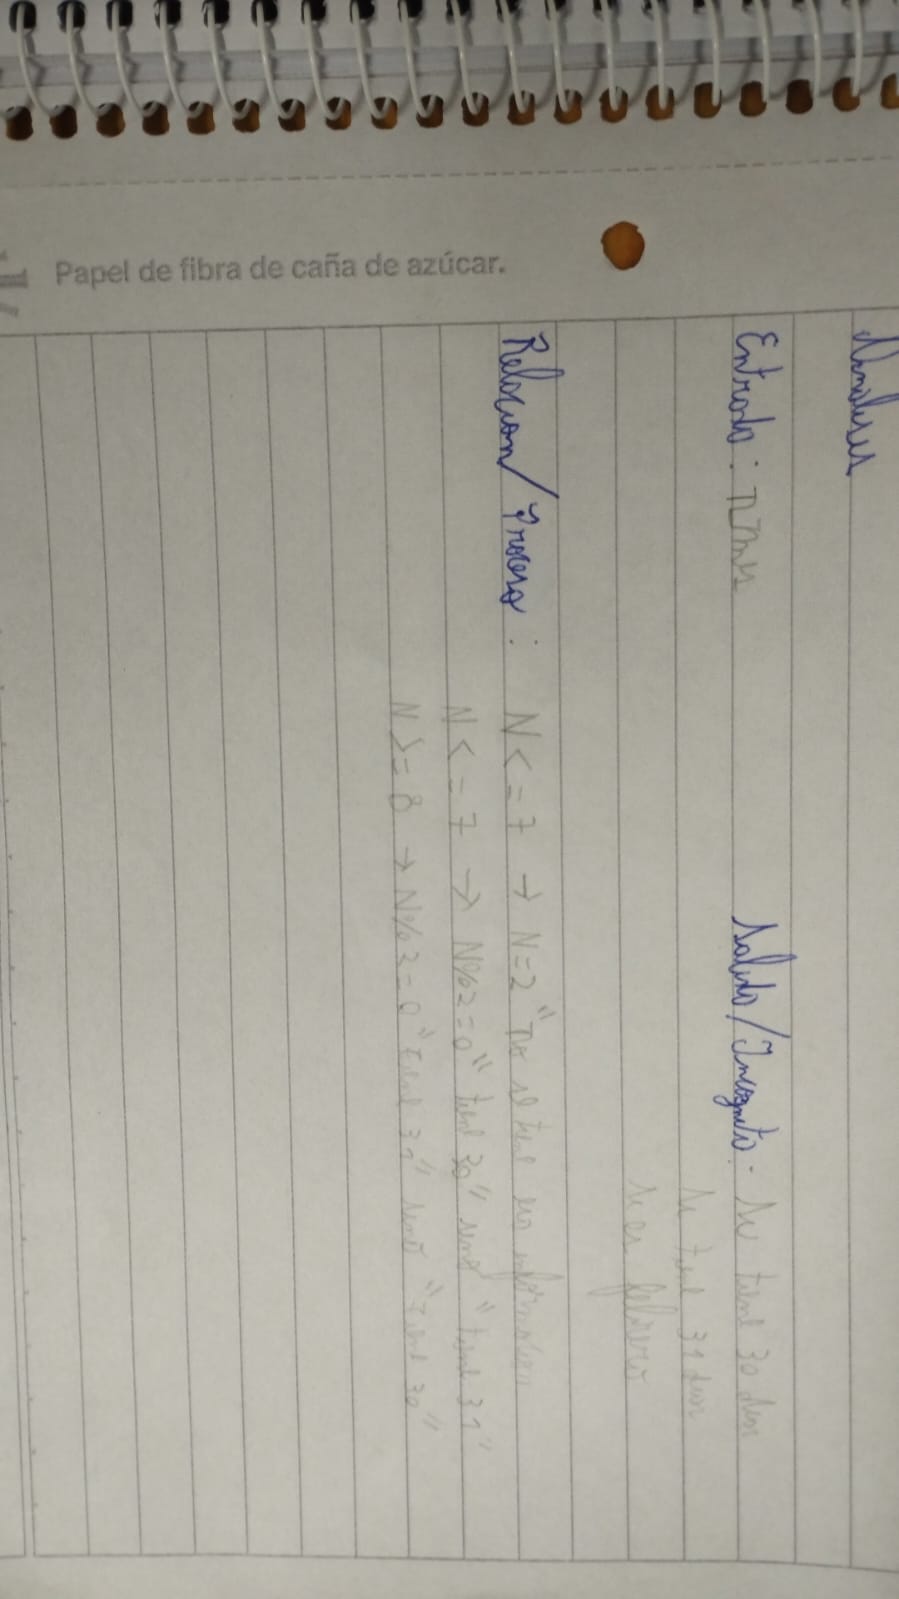 Analisis
Entrada: nMes
Salida/Incognita: Si tiene 30 dias
Si tiene 31 dias
Si es febrero
Relacion/Proceso: N <= 7 → N=2 "no se tiene esa informacion
N <= 7 → N%2=0 "tiene 30" sino "tiene 31"
N >= 8 → N%2=0 "Tiene 31" sino "Tiene 30"
Papel de fibra de caña de azúcar.